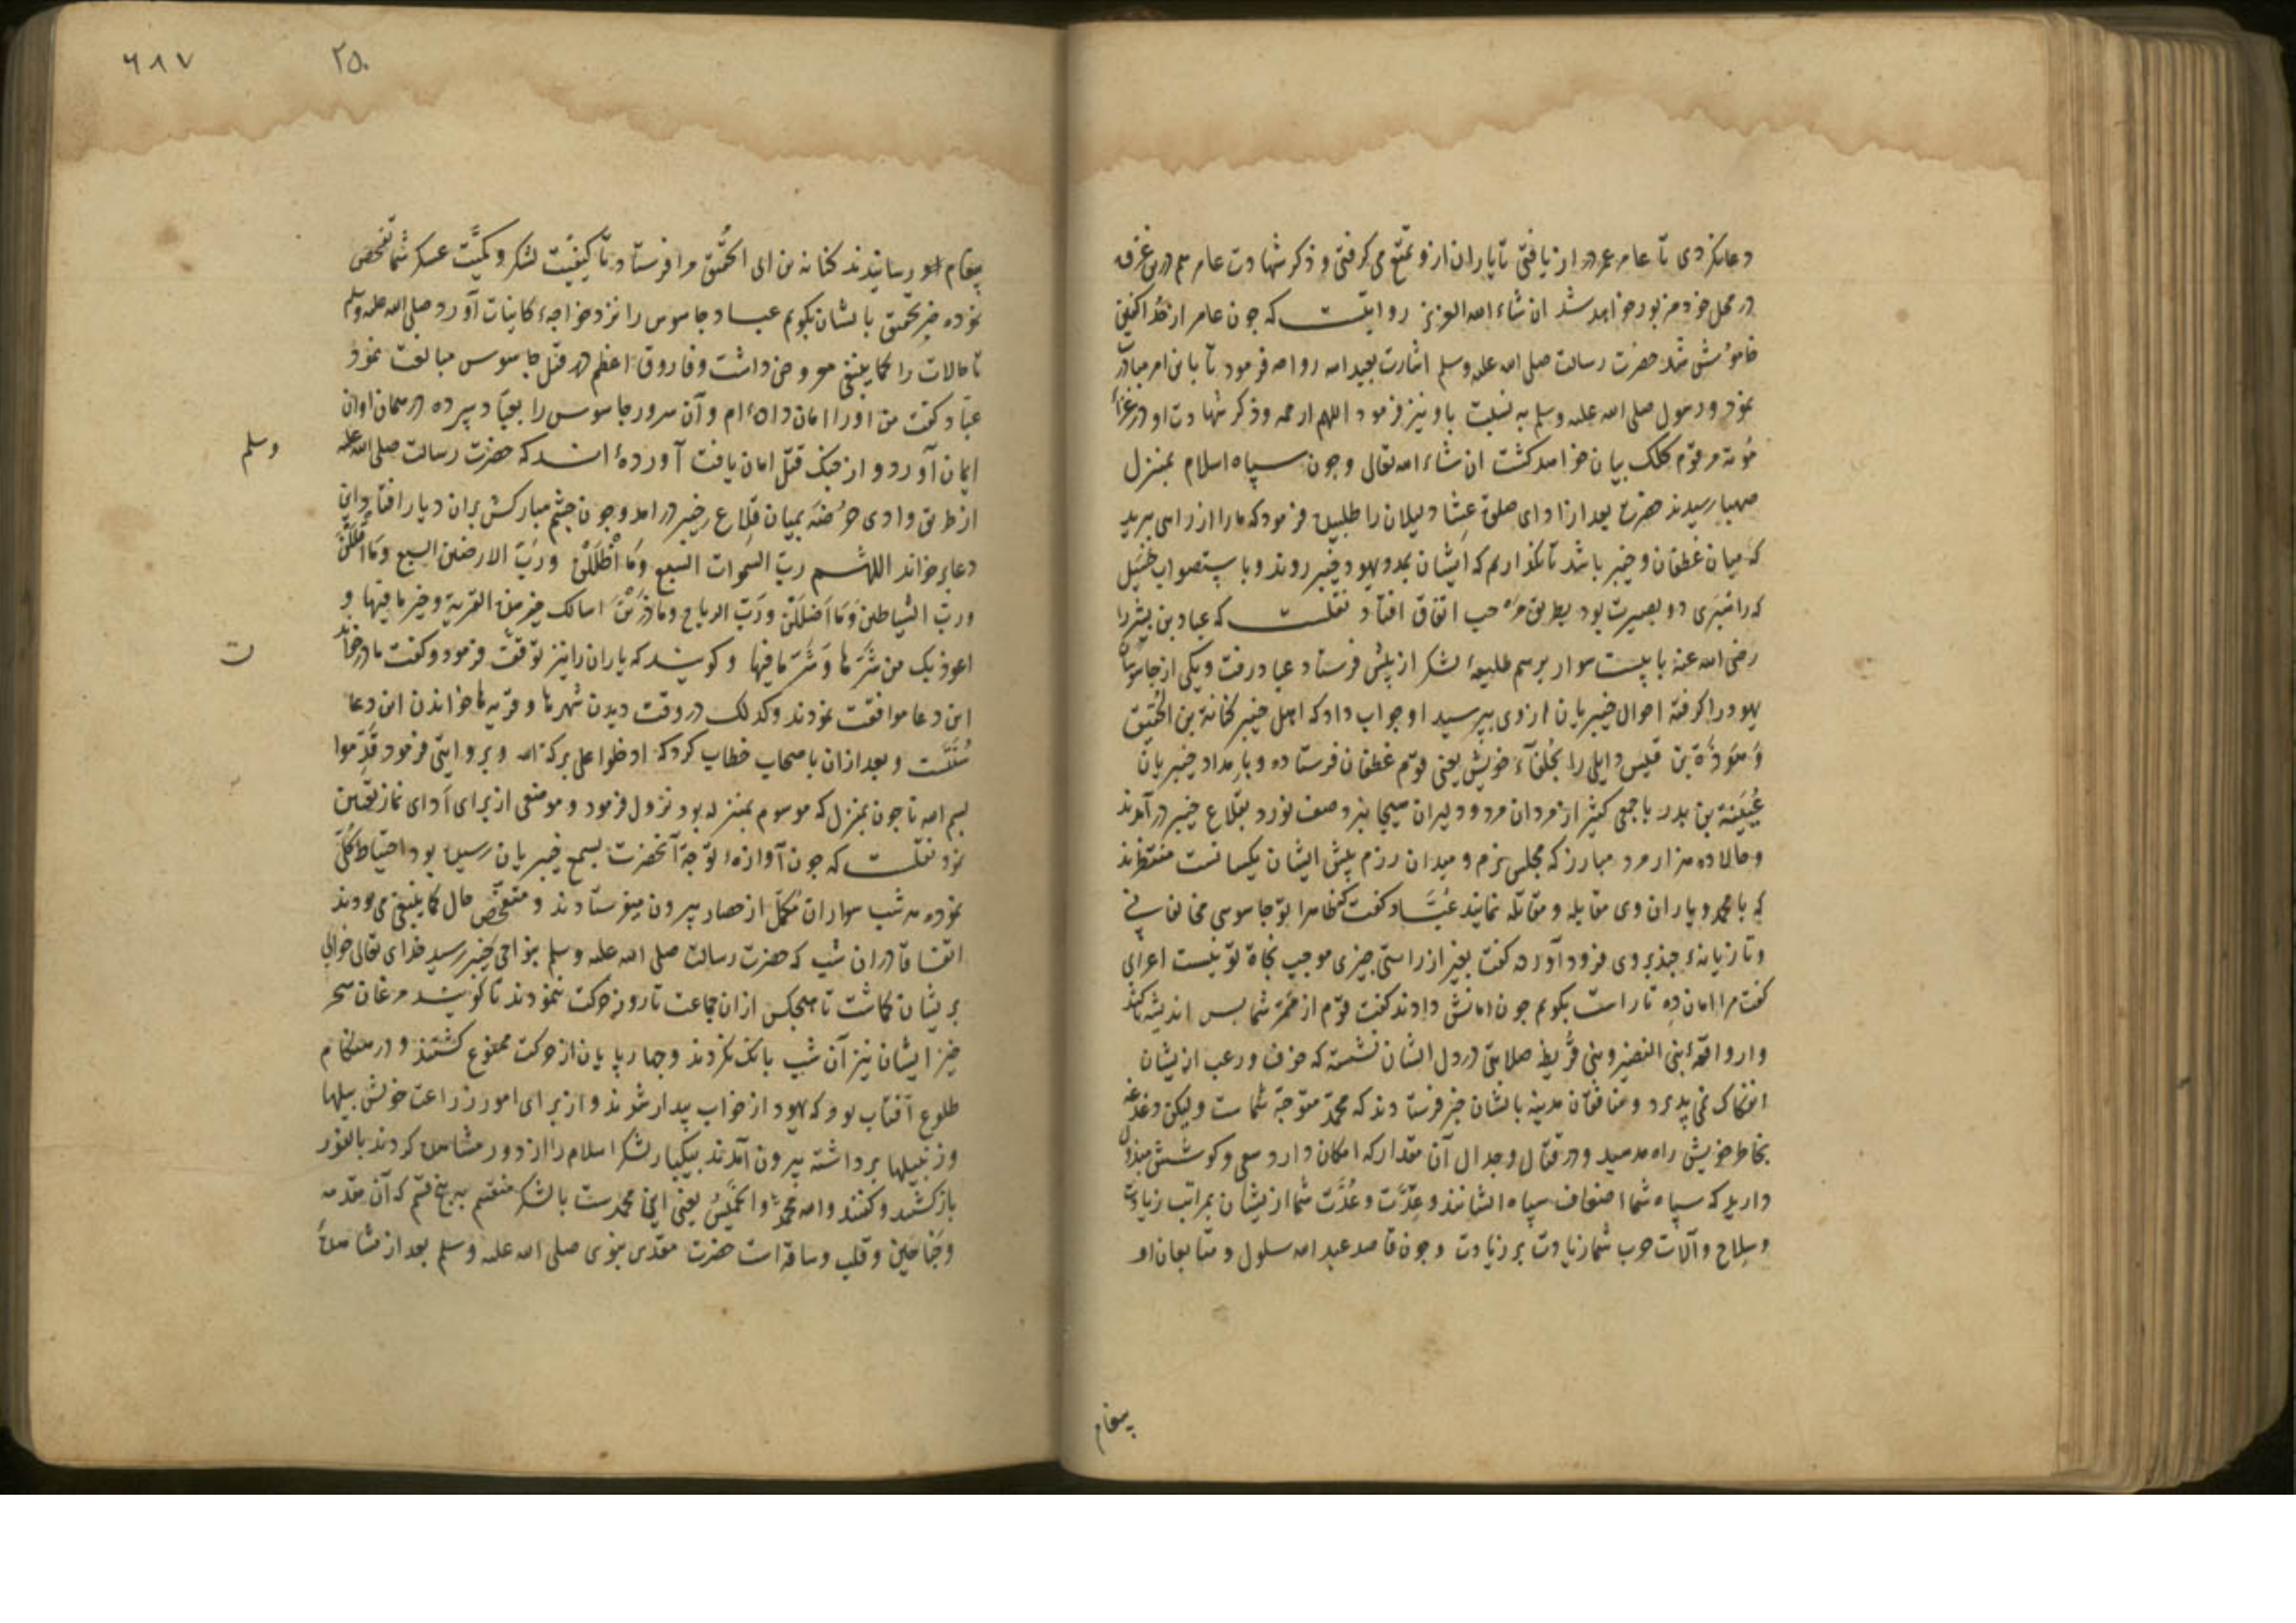 دعا نکردی تا عامر عمر دراز یافتی تا یاران ازو تمتع می گرفتی و ذکر شهادت عامر هم درین غزوه
در محل خود مزبور خواهد شد ان شاء الله العزیز روایتست که چون عامر از حدا گفتن
خاموش شد حضرت رسالت صلی الله علیه وسلم اشارت بعبد الله رواحه فرمود تا باین امر مبادرت
نمود و رسول صلی الله علیه وسلم به نسبت باو نیز فرمود اللهم ارحمه و ذکر شهادت او در غزاء
موته مرقوم کلک بیان خواهد گشت ان شاء الله تعالی و چون سپاه اسلام بمنزل
صهبا رسیدند حضرت بعد از اداى صلوة عشا دلیلان را طلبیده فرمود که ما را از راهی ببرید
که میان غطفان و خیبر باشد تا نگذاریم که ایشان بمدد یهود خیبر روند و باستصواب حسیل
که راهبری ذو بصیرت بود بطریق مرحب اتفاق افتاد نقلست که عباد بن بشر را
رضی الله عنه با بیست سوار برسم طلیعهٔ لشکر از پیش فرستاد عباد رفت و یکی از جاسوسان
یهود را گرفته احوال خیبریان از وی بپرسید او جواب داد که اهل خیبر کنانة بن الحقیق
و هوذة بن قیس وایلی را بحلفآء خویش یعنی قوم غطفان فرستاده و بامداد خیبریان
عیینة بن بدر با جمعی کثیر از مردان مرد و دلیران هیجا نبرد صف نورد بقلاع خیبر درآمدند
و حالا ده هزار مرد مبارز که مجلس بزم و میدان رزم پیش ایشان یکسانست منتظرند
که با محمد و یاران وی مقابله و مقاتله نمایند عباد گفت ظاهرا تو جاسوس مخالفانی
و تازیانهٔ چند بر وی فرود آورده گفت بغیر از راستی چیزی موجب نجاة تو نیست اعرابی
گفت مرا امان ده تا راست بگویم چون امانش دادند گفت قوم از ممر شما بس اندیشه ناکند
و از واقعهٔ بنی النضیر و بنی قریظه صلابتی در دل ایشان نشسته که خوف و رعب از یشان
انفکاک نمی پذیرد و منافقان مدینه بایشان خبر فرستادند که محمد متوجه شماست ولیکن دغدغه
بخاطر خویش راه مدهید و در قتال و جدال آن مقدار که امکان دارد سعی و کوشش مبذول
دارید که سپاه شما اضعاف سپاه ایشانند و عدّت و عُدّت شما از یشان بمراتب زیادت
و سلاح و آلات حرب شما زیادت بر زیادت و چون قاصد عبد الله سلول و متابعان او
پیغام
۲۵۰
۶۸۷
پیغام او رسانیدند کنانه بن ابی الحقیق مرا فرستاد تا کیفیت لشکر و کمیت عسکر شما تفحص
نموده خبر محقق بایشان بگویم عباد جاسوس را نزد خواجهٔ کاینات آورد صلی الله علیه وسلم
تا حالات را کما ینبغی معروض داشت و فاروق اعظم در قتل جاسوس مبالغت نمود
عبّاد گفت من او را امان داده ام و آن سرور جاسوس را بعبّاد سپرده در همان اوان
ایمان آورد و از چنگ قتل امان یافت آورده اند که حضرت رسالت صلی الله علیه
وسلم
از طریق وادی حرضه بمیان قلاع خیبر درامد و چون چشم مبارکش بران دیار افتاد این
دعا برخواند اللهم رب السموات السبع وما اظللن ورب الارضین السبع وما اقللن
ورب الشیاطین وما اضللن ورب الریاح وما ذرین اسالک خیر هذه القریة وخیر ما فیها و
اعوذ بک من شرّها وشرّ ما فیها و گویند که یاران را نیز توقف فرمود و گفت تا در خواندن
ت
این دعا موافقت نمودند و کذلک در وقت دیدن شهرها و قریه ها خواندن این دعا
سنّتست و بعد ازان باصحاب خطاب کرد که ادخلوا علی برکة الله و بروایتی فرمود قدّموا
بسم الله تا چون بمنزل که موسوم بمنزله بود نزول فرمود و موضعی از برای اداى نماز تعیین
نمود نقلست که چون آوازهٔ توجه آنحضرت بسمع خیبریان رسیده بود احتیاط کلی
نموده هر شب سواران مکمل از حصار بیرون میفرستادند و متفحص حال کما ینبغی می بودند
اتفاقا دران شب که حضرت رسالت صلی الله علیه وسلم بنواحی خیبر رسید خدای تعالی خوابی
بریشان گماشت تا هیچکس ازان جماعت تا روز حرکت ننمودند تا گویند مرغان سحر
خیز ایشان نیز آن شب بانک نکردند و چهارپایان از حرکت ممنوع گشتند و در هنگام
طلوع آفتاب بود که یهود از خواب بیدار شدند و از برای امور زراعت خویش بیلها
و زنبیلها برداشته بیرون آمدند بیکبار لشکر اسلام را از دور مشاهده کردند بالفور
بازگشتند و گفتند والله محمد والخمیس یعنی این محمدست با لشکر منقسم به پنج قسم که آن مقدمه
و جناحین و قلب و ساقه است حضرت مقدس نبوی صلی الله علیه وسلم بعد از مشاهدهٔ